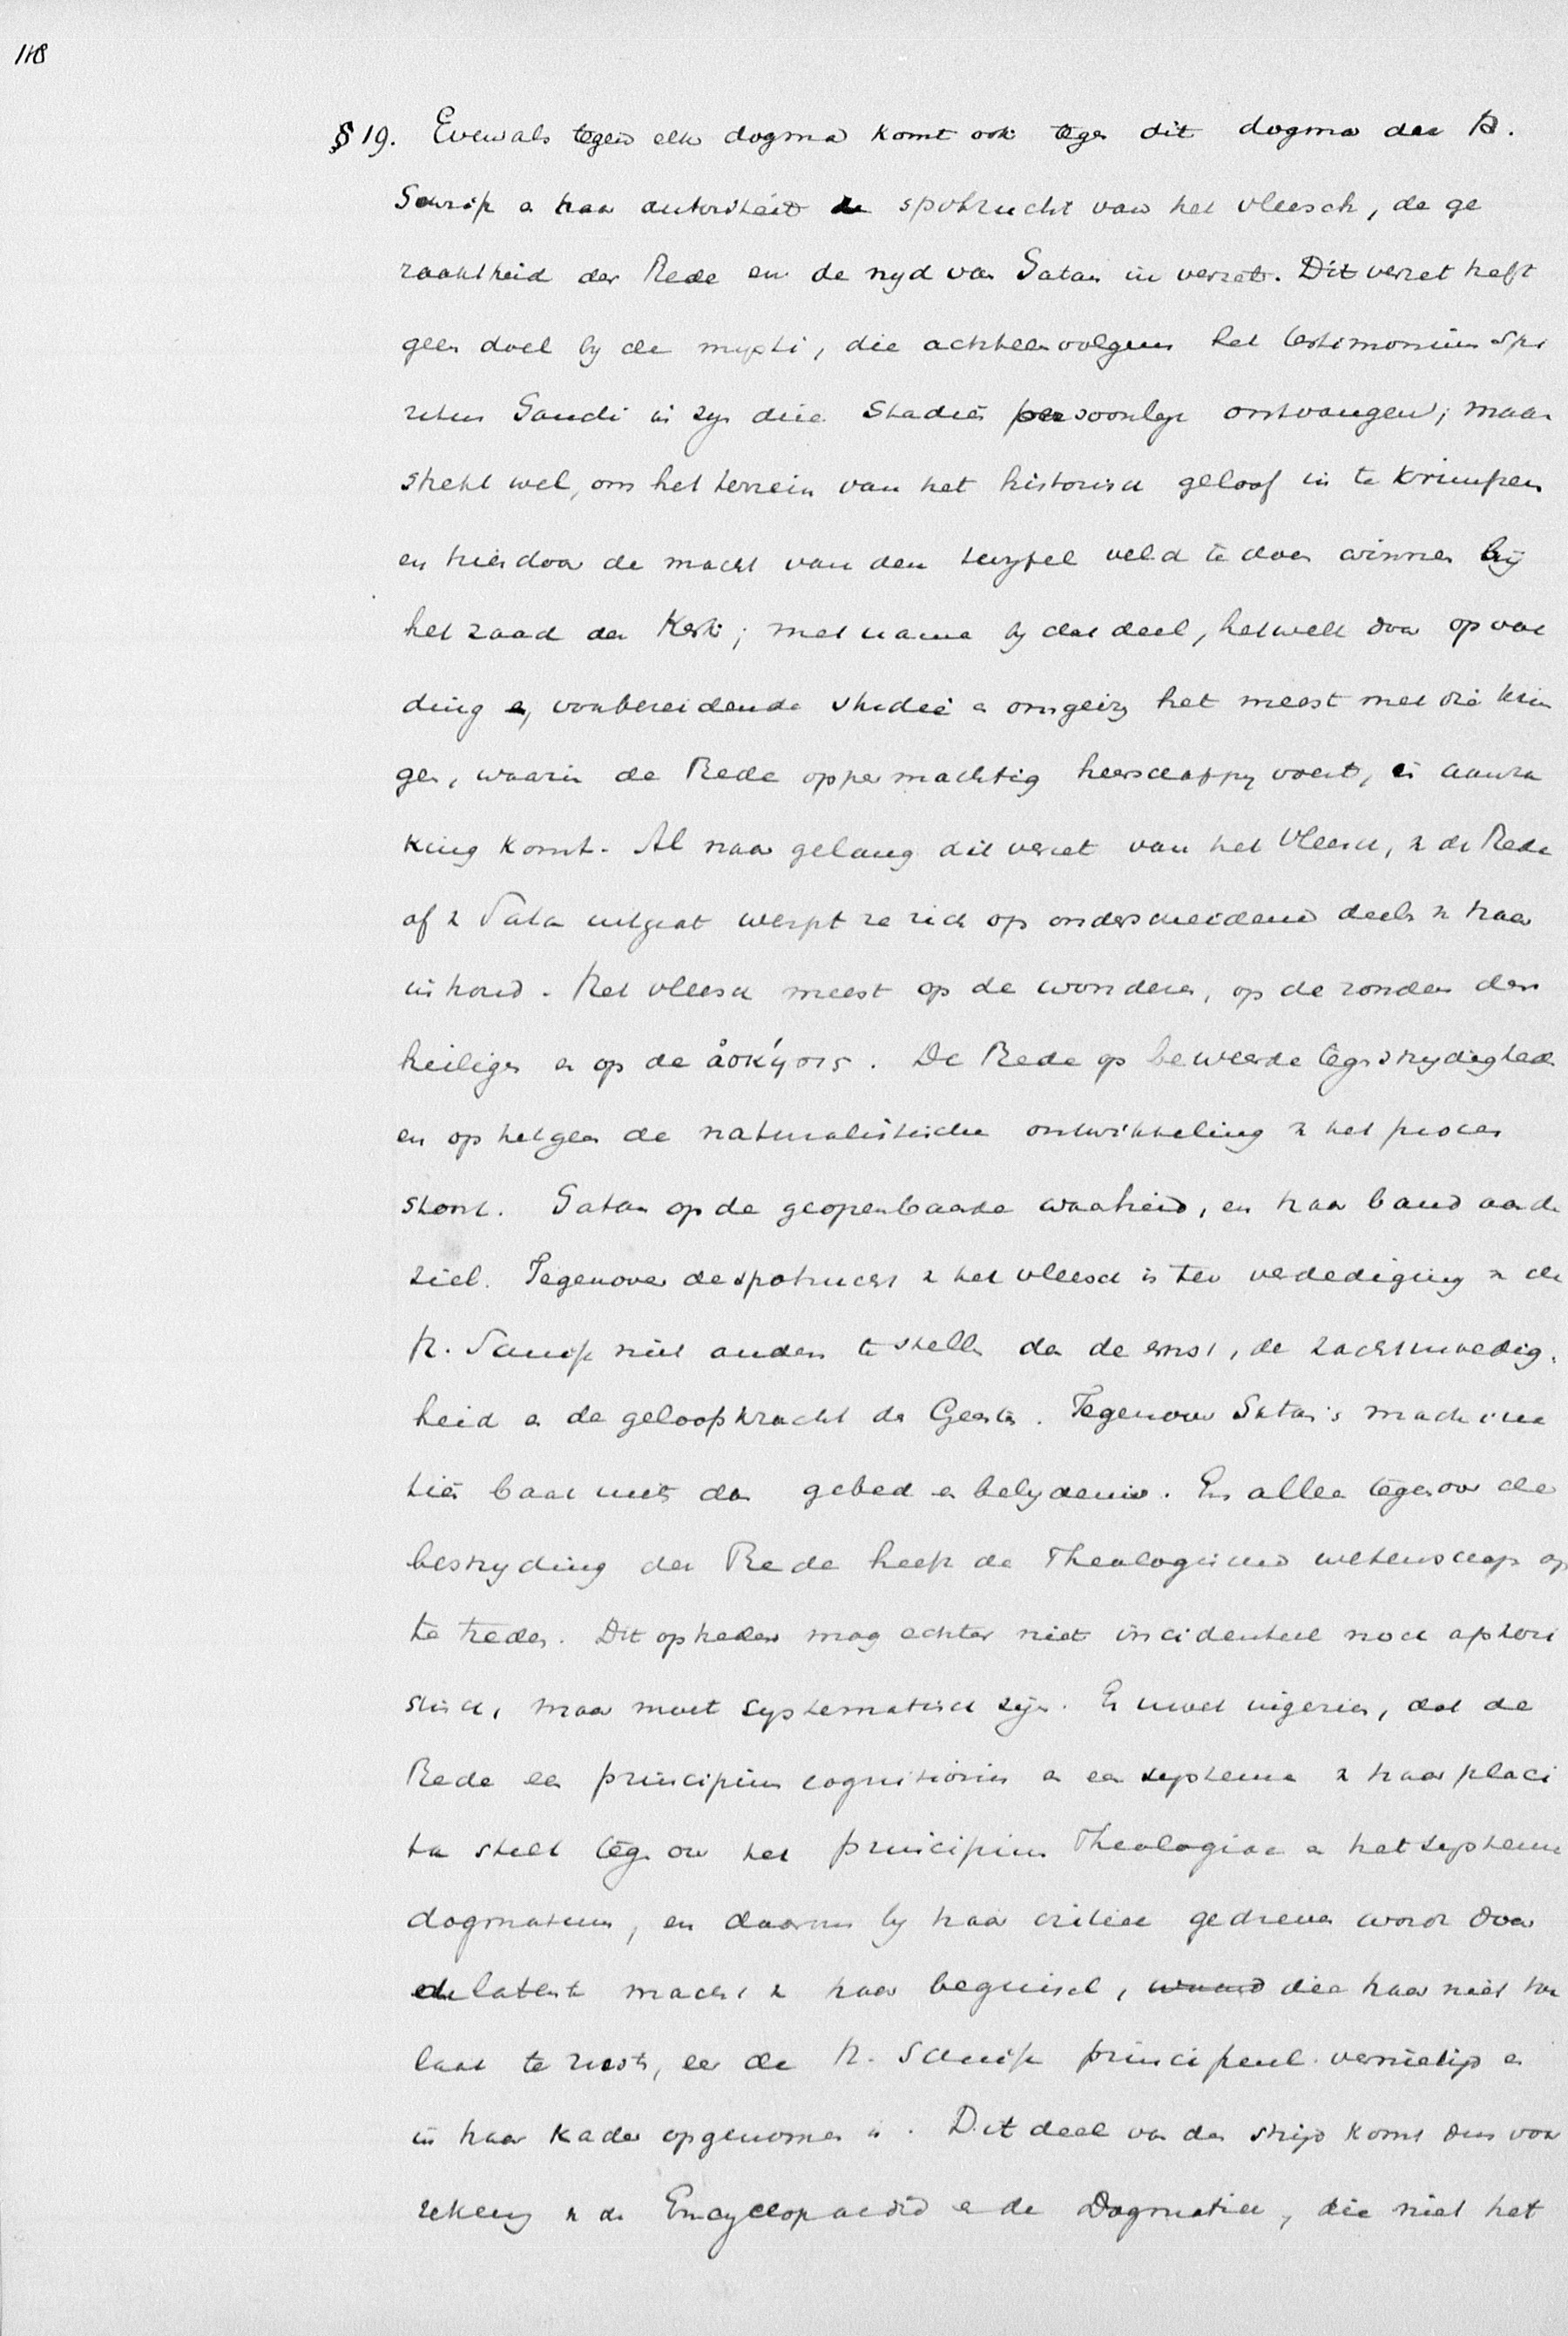 118
§ 19. Evenals tegen elk dogma komt ook tegen dit dogma der H.
Schrift en haar autoriteit de spotzucht van het vleesch, de ge
raaktheid der Rede en de nyd van Satan in verzet. Dit verzet heft
geen doel by de mysti, die achtereenvolgens het testimonium Spi
ritus Sancti in zyn drie stadiën persoonlyk ontvangen; maar
strekt wel, om het terrein van het historisch geloof in te krimpen
en hierdoor de macht van den twyfel veld te doen winnen bij
het zaad der Kerk; met name by dat deel, hetwelk door opvoe
ding en voorbereidende studie en omgeving het meest met die krin
gen, waarin de Rede oppermachtig heerschappy voert, in aanra
king komt. Al naar gelang dit verzet van het Vleesch, v de Rede
of v Satan uitgaat werpt ze zich op onderscheidene deelen v haar
inhoud. Het vleesch meest op de wonderen, op de zonden der
heiligen en op de ἄσκησις. De Rede op beweerde tegenstrydigheden
en op hetgeen de naturalistische ontwikkeling v het proces
stoort. Satan op de geopenbaarde waarheid, en haar band aan de
ziel. Tegenover de spotzucht v het vleesch is ter verdediging v de
H. Schrift niet anders te stellen dan de ernst, de zachtmoedig-
heid en de geloofskracht des Geestes. Tegenover Satan's machina
tiën baat niets dan gebed en belydenis. En alleen tegenover de
bestryding der Rede heeft de Theologische wetenschap op
te treden. Dit optreden mag echter niet incidenteel noch aphori
stisch, maar moet systematisch zijn. Er moet ingezien, dat de
Rede een principium cognitionis en een systema v haar placi
ta stelt tegenover het principium Theologiae en het systema
dogmatum, en daarom by haar critiek gedreven wordt door
de latente macht v haar beginsel, die haar niet toe
laat te rusten, eer de H. Schrift principieel vernietigd en
in haar kader opgenomen is. Dit deel van den strijd komt dus voor
rekening v de Encyclopaedie en de Dogmatiek, die niet het